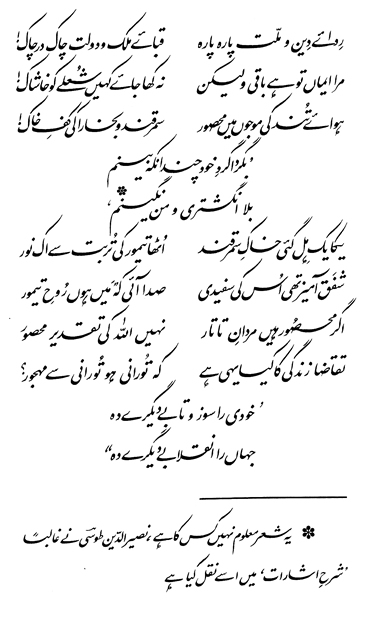 ردائے دین و ملّت پارہ پارہ قبائے ملک و دولت چاک در چاک!
مرا ایماں تو ہے باقی ولیکن نہ کھا جائے کہیں شعلے کو خاشاک!
ہوائے تُند کی موجوں میں محصور سمرقند و بخارا کی کفِ خاک!
'بگرداگردِ خود چندانکہ بینم
بلا انگشتری و من نگینم*،
یکایک ہِل گئی خاکِ سمرقند اُٹھا تیمور کی تُربت سے اک نور
شفَق آمیز تھی اُس کی سفیدی صدا آئی کہ میں ہوں رُوحِ تیمور
اگر محصُور ہیں مردانِ تاتار نہیں اللہ کی تقدیر محصُور
تقاضا زندگی کا کیا یہی ہے کہ تُورانی ہو تُورانی سے مہجور؟
'خودی را سوز و تابے دیگرے دہ
جہاں را انقلابے دیگرے دہ"
* یہ شعر معلوم نہیں کس کا ہے، نصیر الدّین طوسی نے غالباً
'شرحِ اشارات' میں اسے نقل کیا ہے